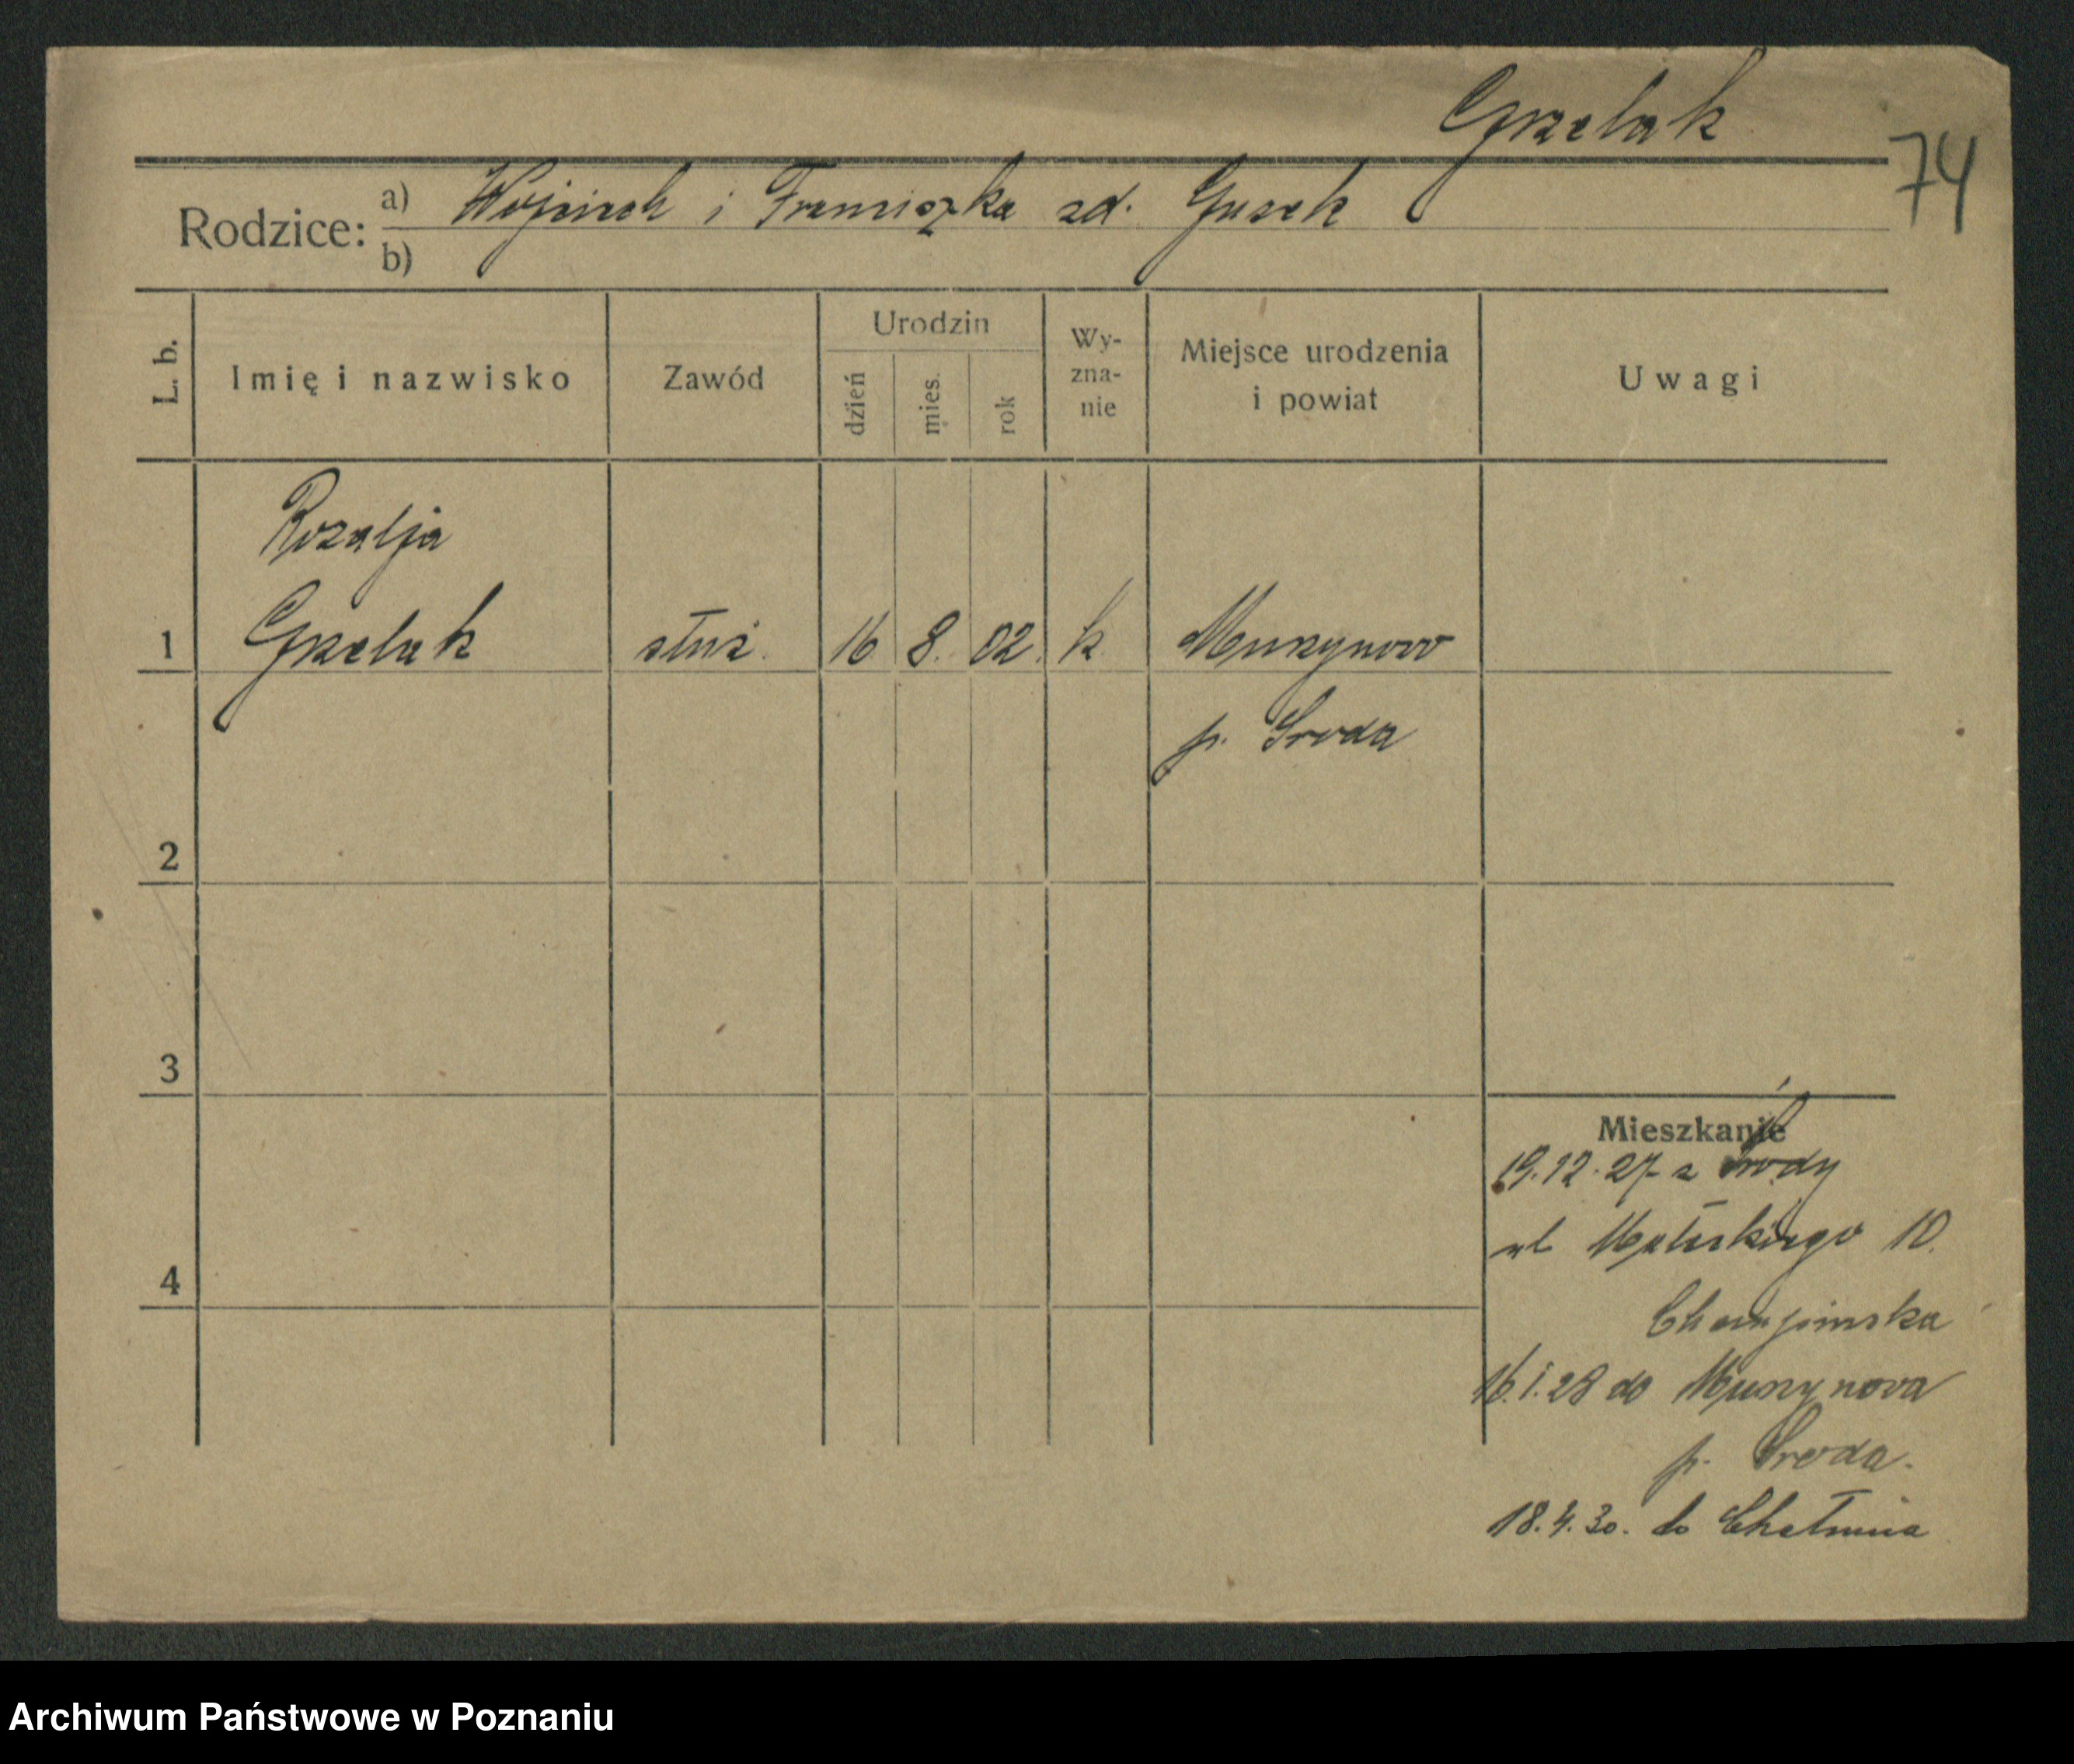 Grzelak
74
Rodzice: a) Wojciech i Franciszka zd. Gusek
b)
L. b. Imię i nazwisko Zawód Urodzin dzień mies. rok Wy-zna-nie Miejsce urodzenia i powiat Uwagi
Rozalja
1 Grzelak służ. 16 8. 02. k Murzynowo
p. Środa
2
3
Mieszkanie
19.12.27 z Środy
ul 10.
4
16.1.28 do Murzynova
p. Środa.
18.4.30. do Chełmna
Archiwum Państwowe w Poznaniu